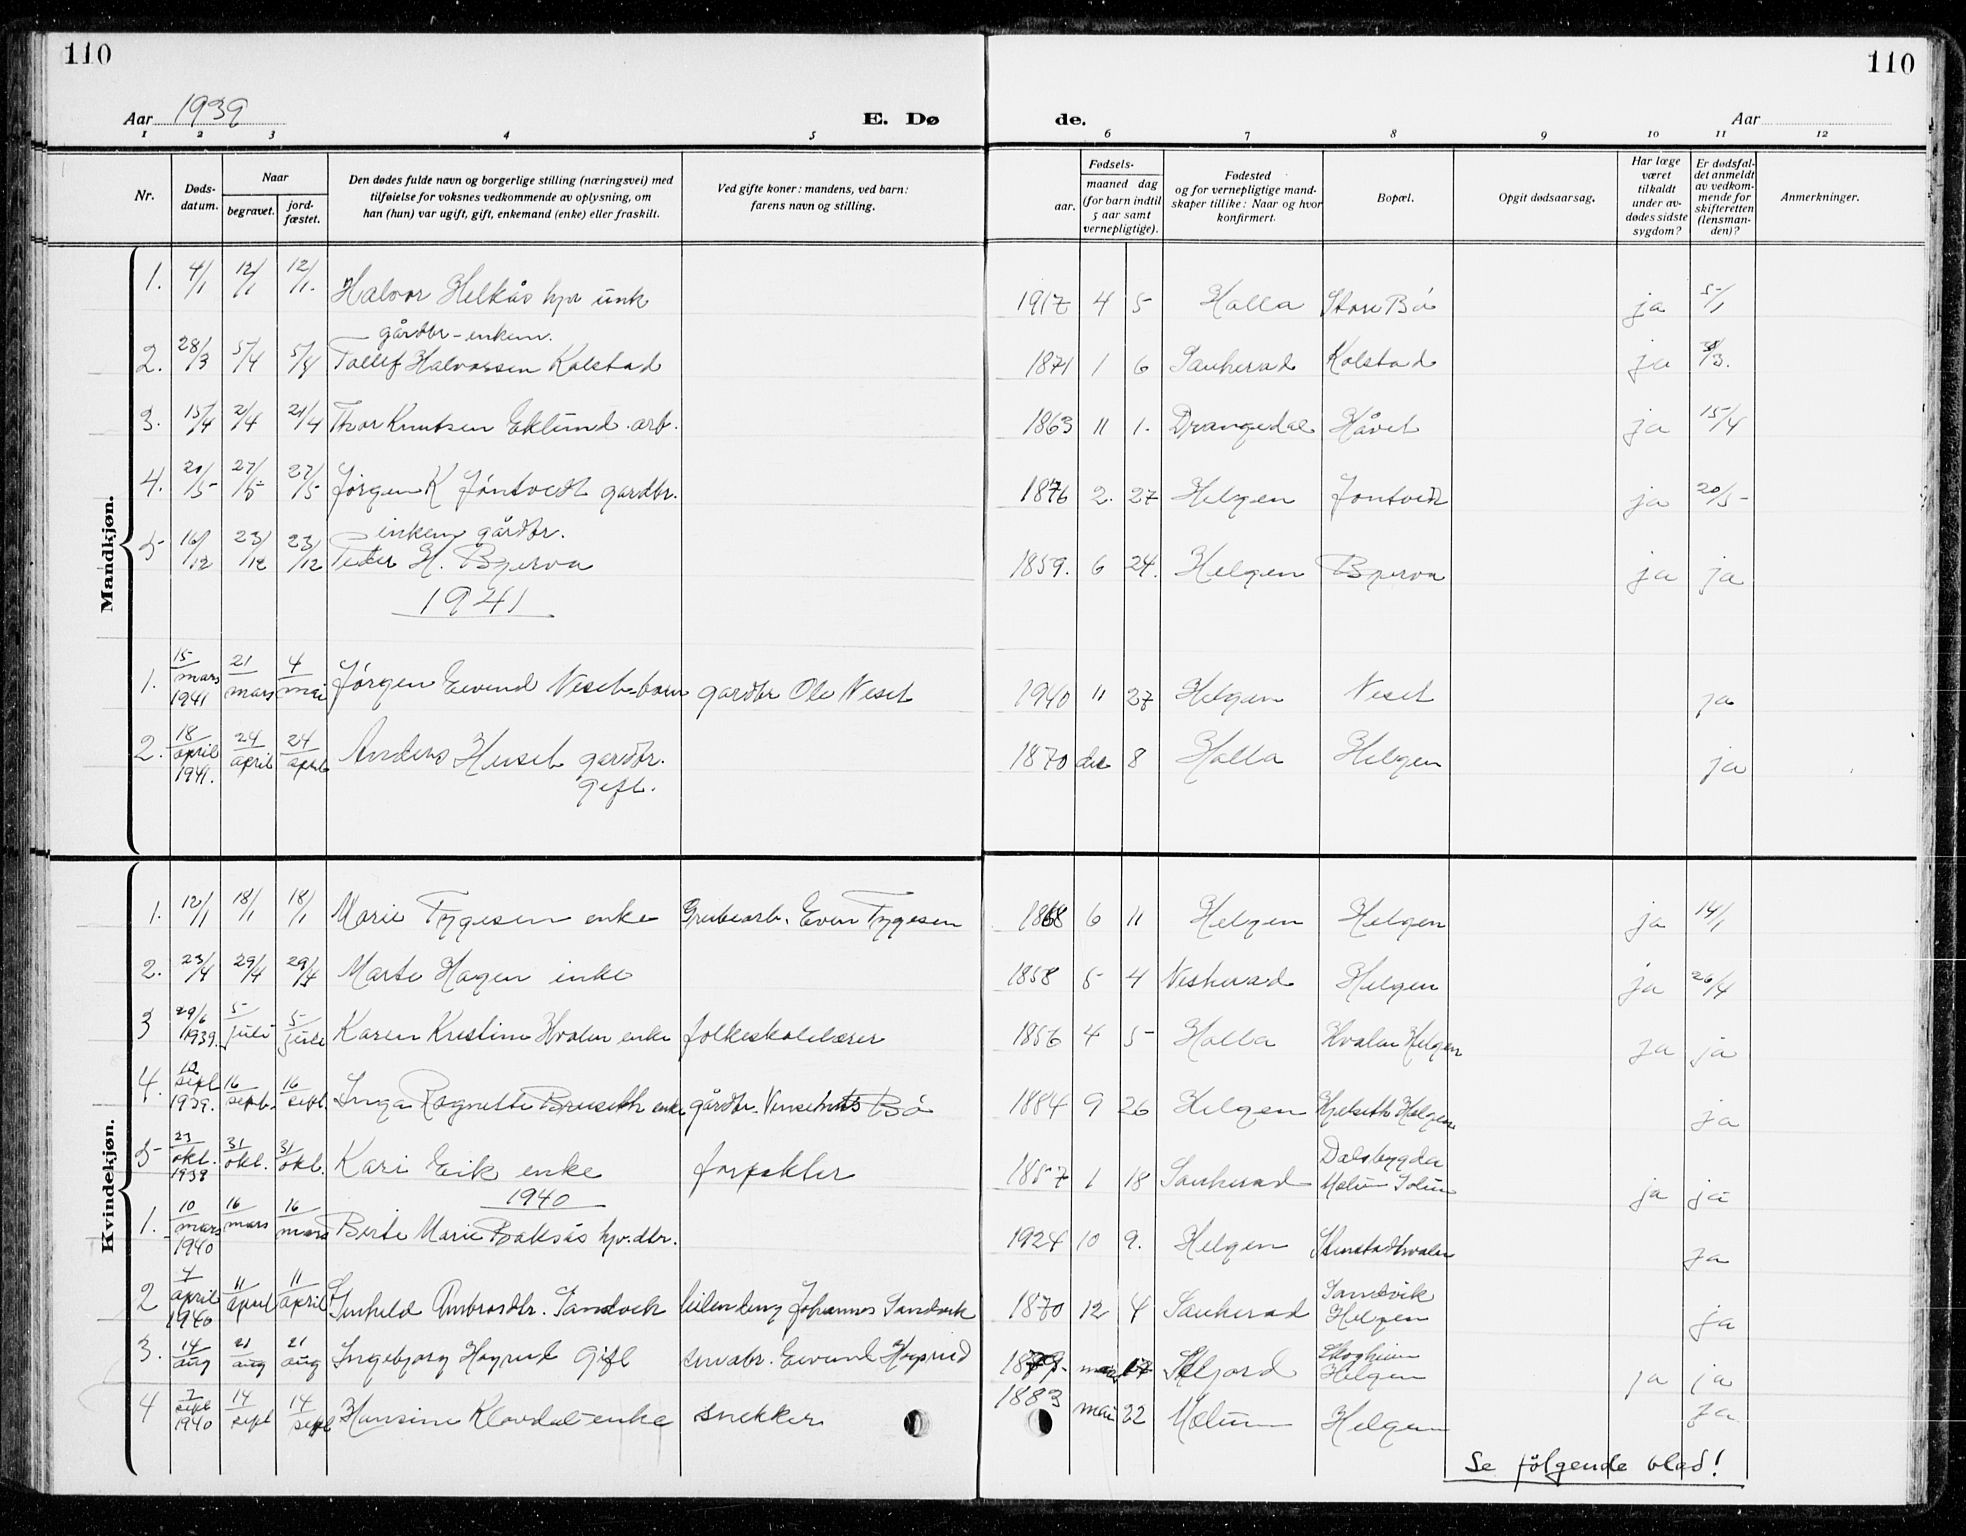 110
110
Aar 1939
E. Dø
de.
Aar
1 2 3 4 5 6 7 8 9 10 11 12
Nr.
Døds-
datum.
Naar
begravet.
jord-
fæstet.
Den dødes fulde navn og borgerlige stilling (næringsvei) med
tilføielse for voksnes vedkommende av oplysning, om
han (hun) var ugift, gift, enkemand (enke) eller fraskilt.
Ved gifte koner: mandens, ved barn:
farens navn og stilling.
Fødsels-
aar.
maaned dag
(for barn indtil
5 aar samt
vernepligtige).
Fødested
og for vernepligtige mand-
skaper tillike: Naar og hvor
konfirmert.
Bopæl.
Opgit dødsaarsag.
Har læge
været
tilkaldt
under av-
dødes sidste
sygdom?
Er dødsfal-
det anmeldt
av vedkom-
mende for
skifteretten
(lensman-
den)?
Anmerkninger.
Mandkjøn.
1. 4/1 12/1 12/1. Halvor Helkås hjv unk 1917 4 5 Holla Store Bø ja 5/1
gårdbr - enkem.
2. 28/3 5/4 5/4 Tollef Halvorsen Kolstad 1871 1 6 Sauherad Kolstad ja /3.
3. 15/4 21/4 21/4 Thor Knutsen Eklund. arb. 1863 11 1. Drangedal Håvet ja 15/4
4. 20/5 27/5 27/5 Jørgen K Jøntvedt gardbr. 1876 2. 27 Helgen Jontvedt ja 20/5
enkem gårdbr.
5 16/12 23/12 23/12 Peder H. Bjerva 1859. 6 24. Helgen Bjerva ja ja
1941
1. 15 mars 1941 21 mars 4 mai Jørgen Eivind Neset - barn gardbr Ole Neset 1940 11 27 Helgen Neset ja
2. 18 april 1941. 24 april 24 april Anders Huset gardbr. 1870 des 8 Holla Helgen ja
gift.
Kvindekjøn.
1. 12/1 18/1 18/1 Marie Tygesen enke Grubearb. Even Tygesen 1868 6 11 Helgen Helgen ja 14/1
2. 23/4 29/4 29/4 Marte Hagen enke 1858 5 4 Nesherad Helgen ja 26/4
3 29/6 1939. 5 juli 5 juli Karen Kristine Hvalen enke folkeskolelærer 1856 4 5 Holla Hvalen Helgen ja ja
4. 12 sept 1939. 16 sept. 16 sept. Inga Ragnette Bruseth enke gårdbr. Bø 1884 9 26 Helgen Hjelseth Helgen ja
5 23 okt. 1939 31 okt. 31 okt. Kari Eik enke forpakter 1857 1 18 Sauherad Dalsbygda
Melum Solum ja ja
1940
1. 10 mars 1940 16 mars 16 mars Birte Marie Baksås hjv. dtr. 1924 10 9. Helgen Stenstadhvalen ja
2 4 april 1940 11 april 11 april Gunhild Ambrosdtr. Sandvik leilending Johannes Sandvik 1870 12 4 Sauherad Sandvik
Helgen ja
3. 14 aug 21 aug 21 aug Ingebjørg Høgrud Gift Eivind Høgrud 17 Seljord Skogheim
Helgen ja ja
4 7 sept 1940 14 sept 14 sept Hansine Klovdal - enke snekker 1883 mai 22 Melum Helgen ja
Se følgende blad!